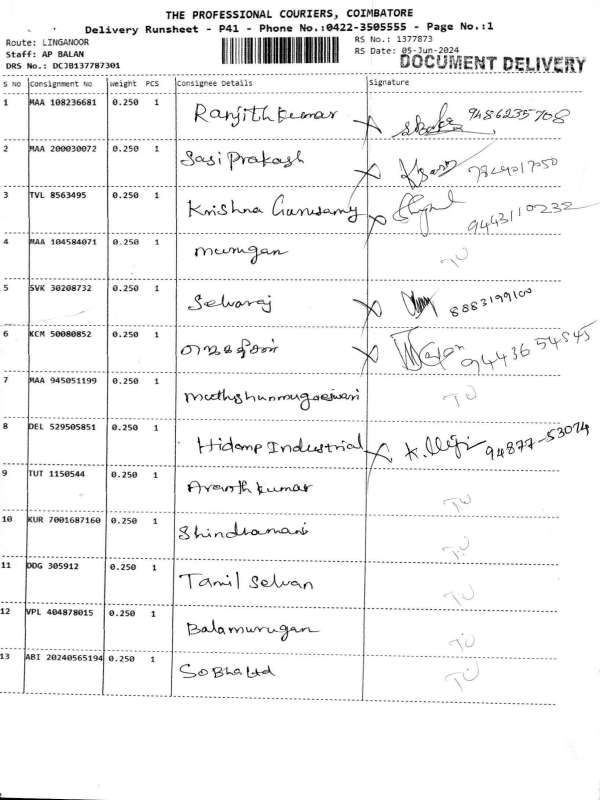 THE PROFESSIONAL COURIERS, COIMBATORE
Delivery Runsheet - P41 - Phone No.:0422-3505555 - Page No.:1
Route: LINGANOOR
RS No.: 1377873
Staff: AP BALAN
RS Date: 05-Jun-2024
DRS No.: DCJB137787301
DOCUMENT DELIVERY
S No Consignment No Weight PCS Consignee Details Signature
1 MAA 108236681 0.250 1 Ranjithkumar X 9486235708
2 MAA 200030072 0.250 1 Sasi Prakash X
3 TVL 8563495 0.250 1 Krishna Gurusamy X 9443110232
4 MAA 104584071 0.250 1 murugan TU
5 SVK 30208732 0.250 1 Selvaraj X 8883199100
6 KCM 50080852 0.250 1 X 9443654545
7 MAA 945051199 0.250 1 TU
8 DEL 529505851 0.250 1 Hidomp Industrial X 94877-53074
9 TUT 1150544 0.250 1 Aravoth kumar TU
10 KUR 7001687160 0.250 1 Shindhamani TU
11 DDG 305912 0.250 1 Tamil Selvan TU
12 VPL 404878015 0.250 1 Balamurugan TU
13 ABI 20240565194 0.250 1 Sobha Ltd TU